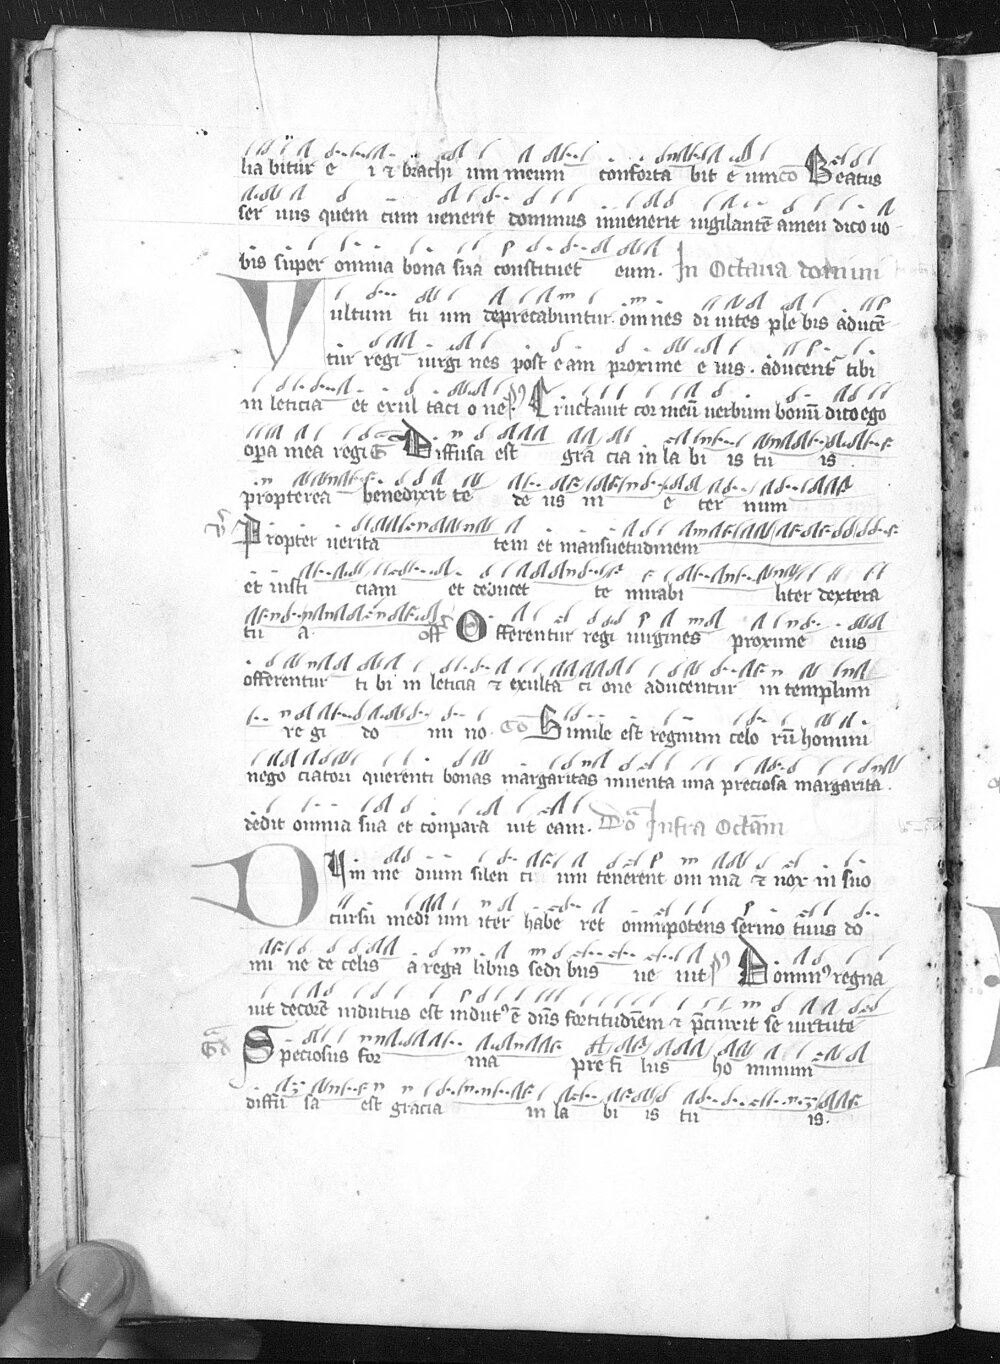 lia bitur e i et brachi um meum conforta bit e um co Beatus
ser uus quem cum uenerit dominus inuenerit uigilantē amen dico uo
bis super omnia bona sua constituet eum. In Octaua domini
Vultum tu um deprecabuntur. omnes di uites ple bis aducē
tur regi uirgi nes post eam proxime e ius. aducent tibi
in leticia et exul taci o ne. Eructauit cor meū uerbum bonū dico ego
opera mea regi G Diffusa est gra cia in la bi is tu is
propterea benedixit te de us in e ter num
V Propter uerita tem et mansuetudinem
et iusti ciam et deducet te mirabi liter dextera
tu a. off Offerentur regi uirgines proxime eius
offerentur ti bi in leticia et exulta ci one aducentur in templum
re gi do mi no. Cō Simile est regnum celo rū homini
nego ciatori querenti bonas margaritas inuenta una preciosa margarita.
dedit omnia sua et conpara uit eam. Dō Infra Octām
Dum me dium silen ci um tenerent om nia et nox in suo
cursu medi um iter habe ret omnipotens sermo tuus do
mi ne de celis a rega libus sedi bus ue nit Dominꝰ regna
uit decorē indutus est indutꝰ ē dn̄s fortitudinem et p̄cinxit se uirtute
Gd Speciosus for ma pre fi liis ho minum
diffu sa est gracia in la bi is tu is.